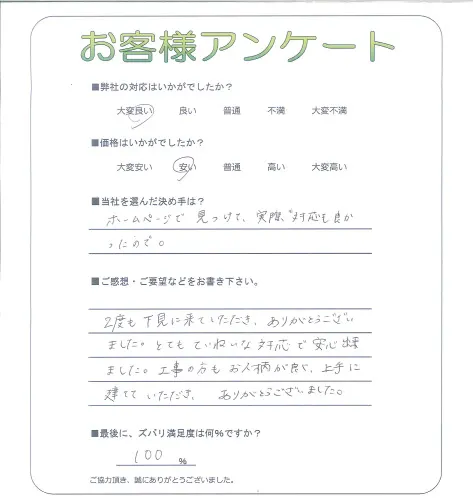 お客様アンケート
■弊社の対応はいかがでしたか？
大変良い 良い 普通 不満 大変不満
■価格はいかがでしたか？
大変安い 安い 普通 高い 大変高い
■当社を選んだ決め手は？
ホームページで見つけて、実際、対応も良か
ったので。
■ご感想・ご要望などをお書き下さい。
2度も下見に来ていただき、ありがとうござい
ました。とてもていねいな対応で安心出来
ました。工事の方もお人柄が良く、上手に
建てていただき、ありがとうございました。
■最後に、ズバリ満足度は何%ですか？
100 %
ご協力頂き、誠にありがとうございました。